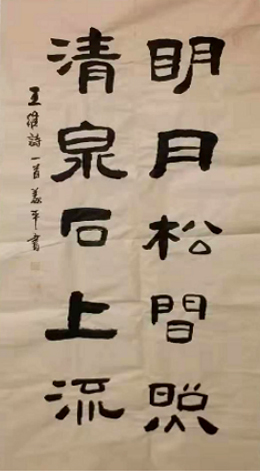 明月松間照
清泉石上流
王維詩一首